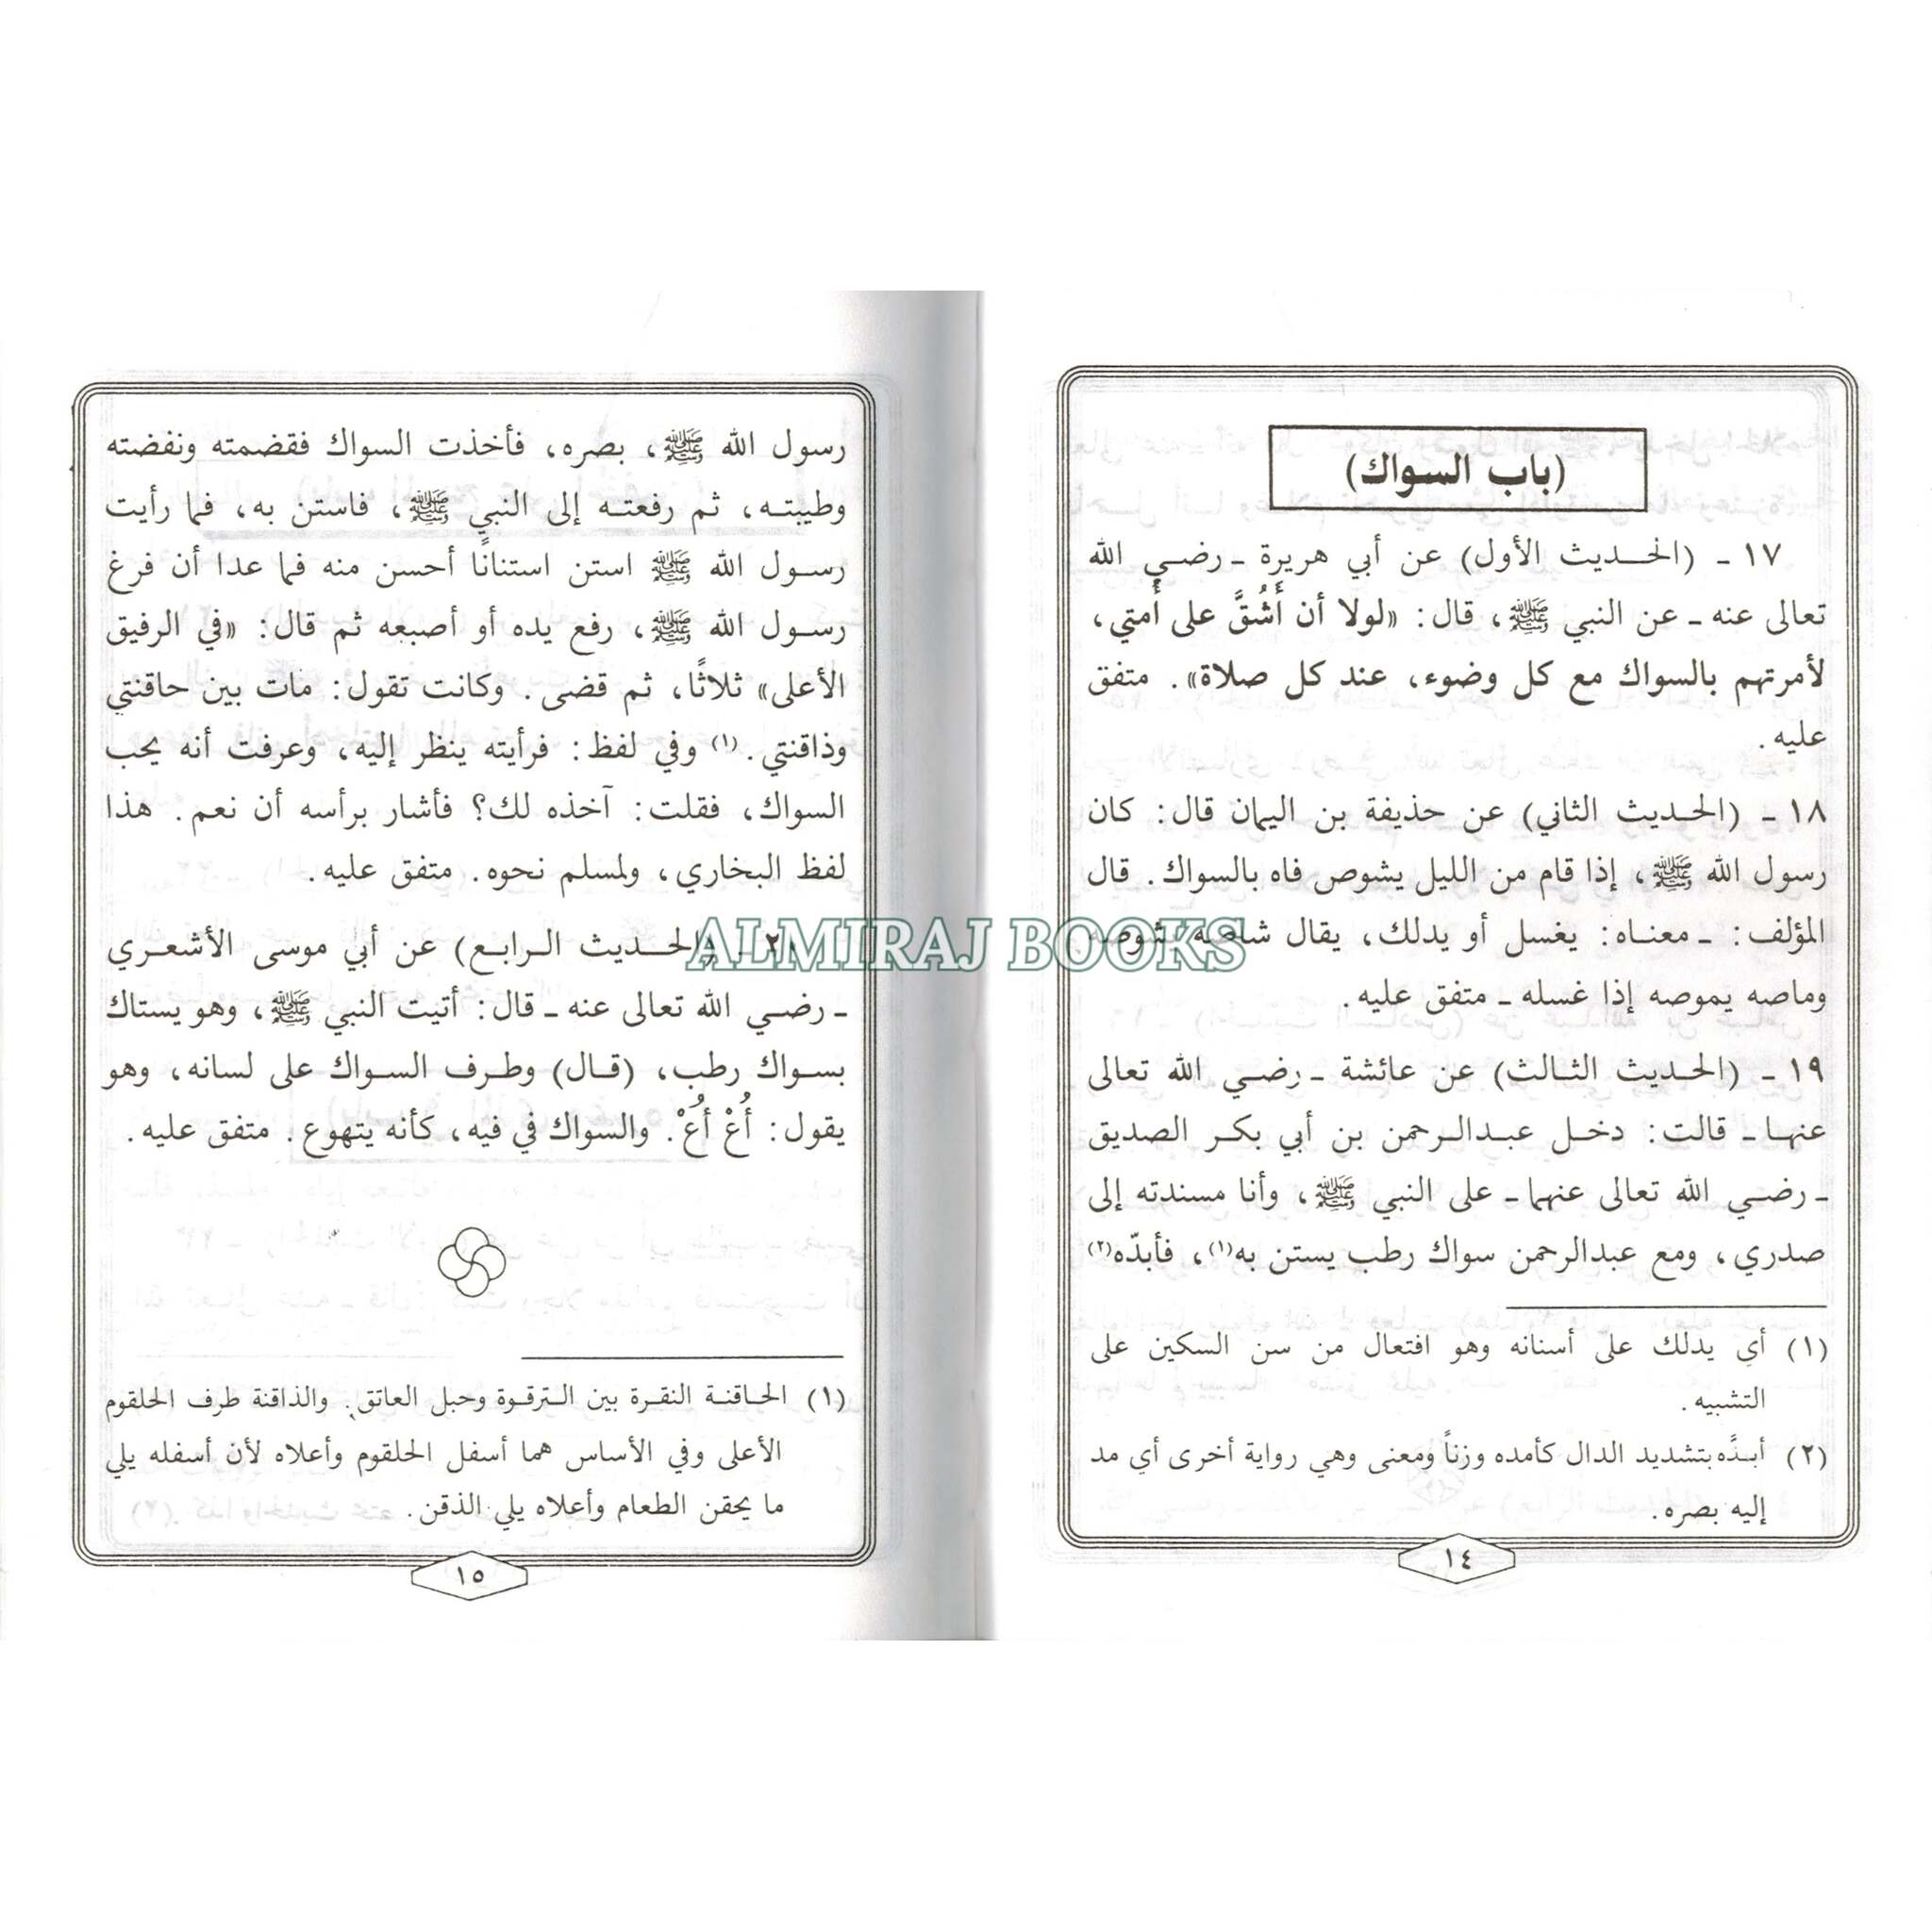 (باب السواك)
١٧ ـ (الحديث الأول) عن أبي هريرة ـ رضي الله
تعالى عنه ـ عن النبي ﷺ، قال: «لولا أن أَشُقَّ على أُمتي،
لأمرتهم بالسواك مع كل وضوء، عند كل صلاة». متفق
عليه.
١٨ ـ (الحديث الثاني) عن حذيفة بن اليمان قال: كان
رسول الله ﷺ، إذا قام من الليل يشوص فاه بالسواك. قال
المؤلف: ـ معناه: يغسل أو يدلك، يقال شاصه يشوصه
وماصه يموصه إذا غسله ـ متفق عليه.
١٩ ـ (الحديث الثالث) عن عائشة ـ رضي الله تعالى
عنها ـ قالت: دخل عبدالرحمن بن أبي بكر الصديق
ـ رضي الله تعالى عنهما ـ على النبي ﷺ، وأنا مسندته إلى
صدري، ومع عبدالرحمن سواك رطب يستن به(١)، فأبدّه(٢)
(١) أي يدلك على أسنانه وهو افتعال من سن السكين على
التشبيه.
(٢) أبدَّه بتشديد الدال كأمده وزناً ومعنى وهي رواية أخرى أي مد
إليه بصره.
١٤
رسول الله ﷺ، بصره، فأخذت السواك فقضمته ونفضته
وطيبته، ثم رفعته إلى النبي ﷺ، فاستن به، فما رأيت
رسول الله ﷺ استن استنانًا أحسن منه فما عدا أن فرغ
رسول الله ﷺ، رفع يده أو أصبعه ثم قال: «في الرفيق
الأعلى» ثلاثًا، ثم قضى. وكانت تقول: مات بين حاقنتي
وذاقنتي.(١) وفي لفظ: فرأيته ينظر إليه، وعرفت أنه يحب
السواك، فقلت: آخذه لك؟ فأشار برأسه أن نعم. هذا
لفظ البخاري، ولمسلم نحوه. متفق عليه.
٢٠ ـ (الحديث الرابع) عن أبي موسى الأشعري
ـ رضي الله تعالى عنه ـ قال: أتيت النبي ﷺ، وهو يستاك
بسواك رطب، (قال) وطرف السواك على لسانه، وهو
يقول: أُعْ أُعْ. والسواك في فيه، كأنه يتهوع. متفق عليه.
(١) الحاقنة النقرة بين الترقوة وحبل العاتق. والذاقنة طرف الحلقوم
الأعلى وفي الأساس هما أسفل الحلقوم وأعلاه لأن أسفله يلي
ما يحقن الطعام وأعلاه يلي الذقن.
١٥
ALMIRAJ BOOKS